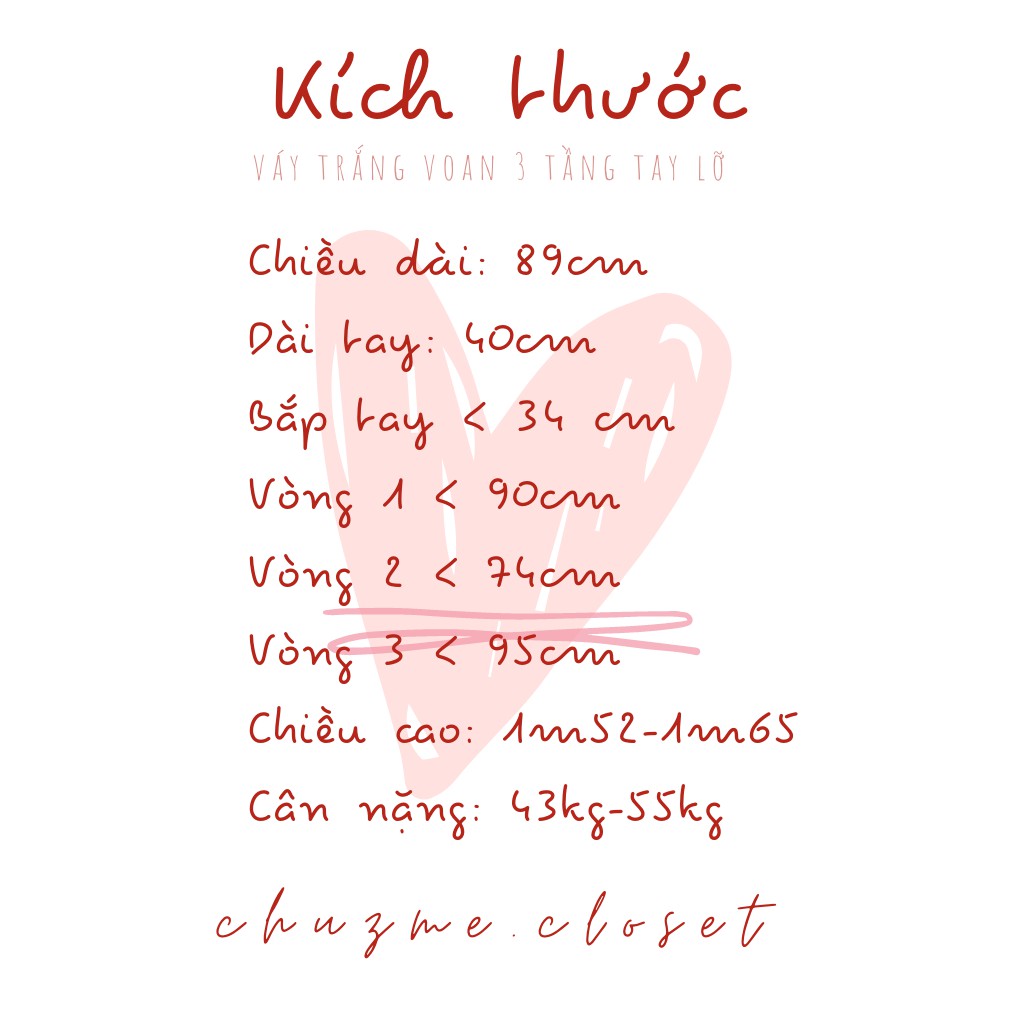 Kích thước
VÁY TRẮNG VOAN 3 TẦNG TAY LỠ
Chiều dài: 89cm
Dài tay: 40cm
Bắp tay < 34 cm
Vòng 1 < 90cm
Vòng 2 < 74cm
Vòng 3 < 95cm
Chiều cao: 1m52-1m65
Cân nặng: 43kg-55kg
chuzme.closet